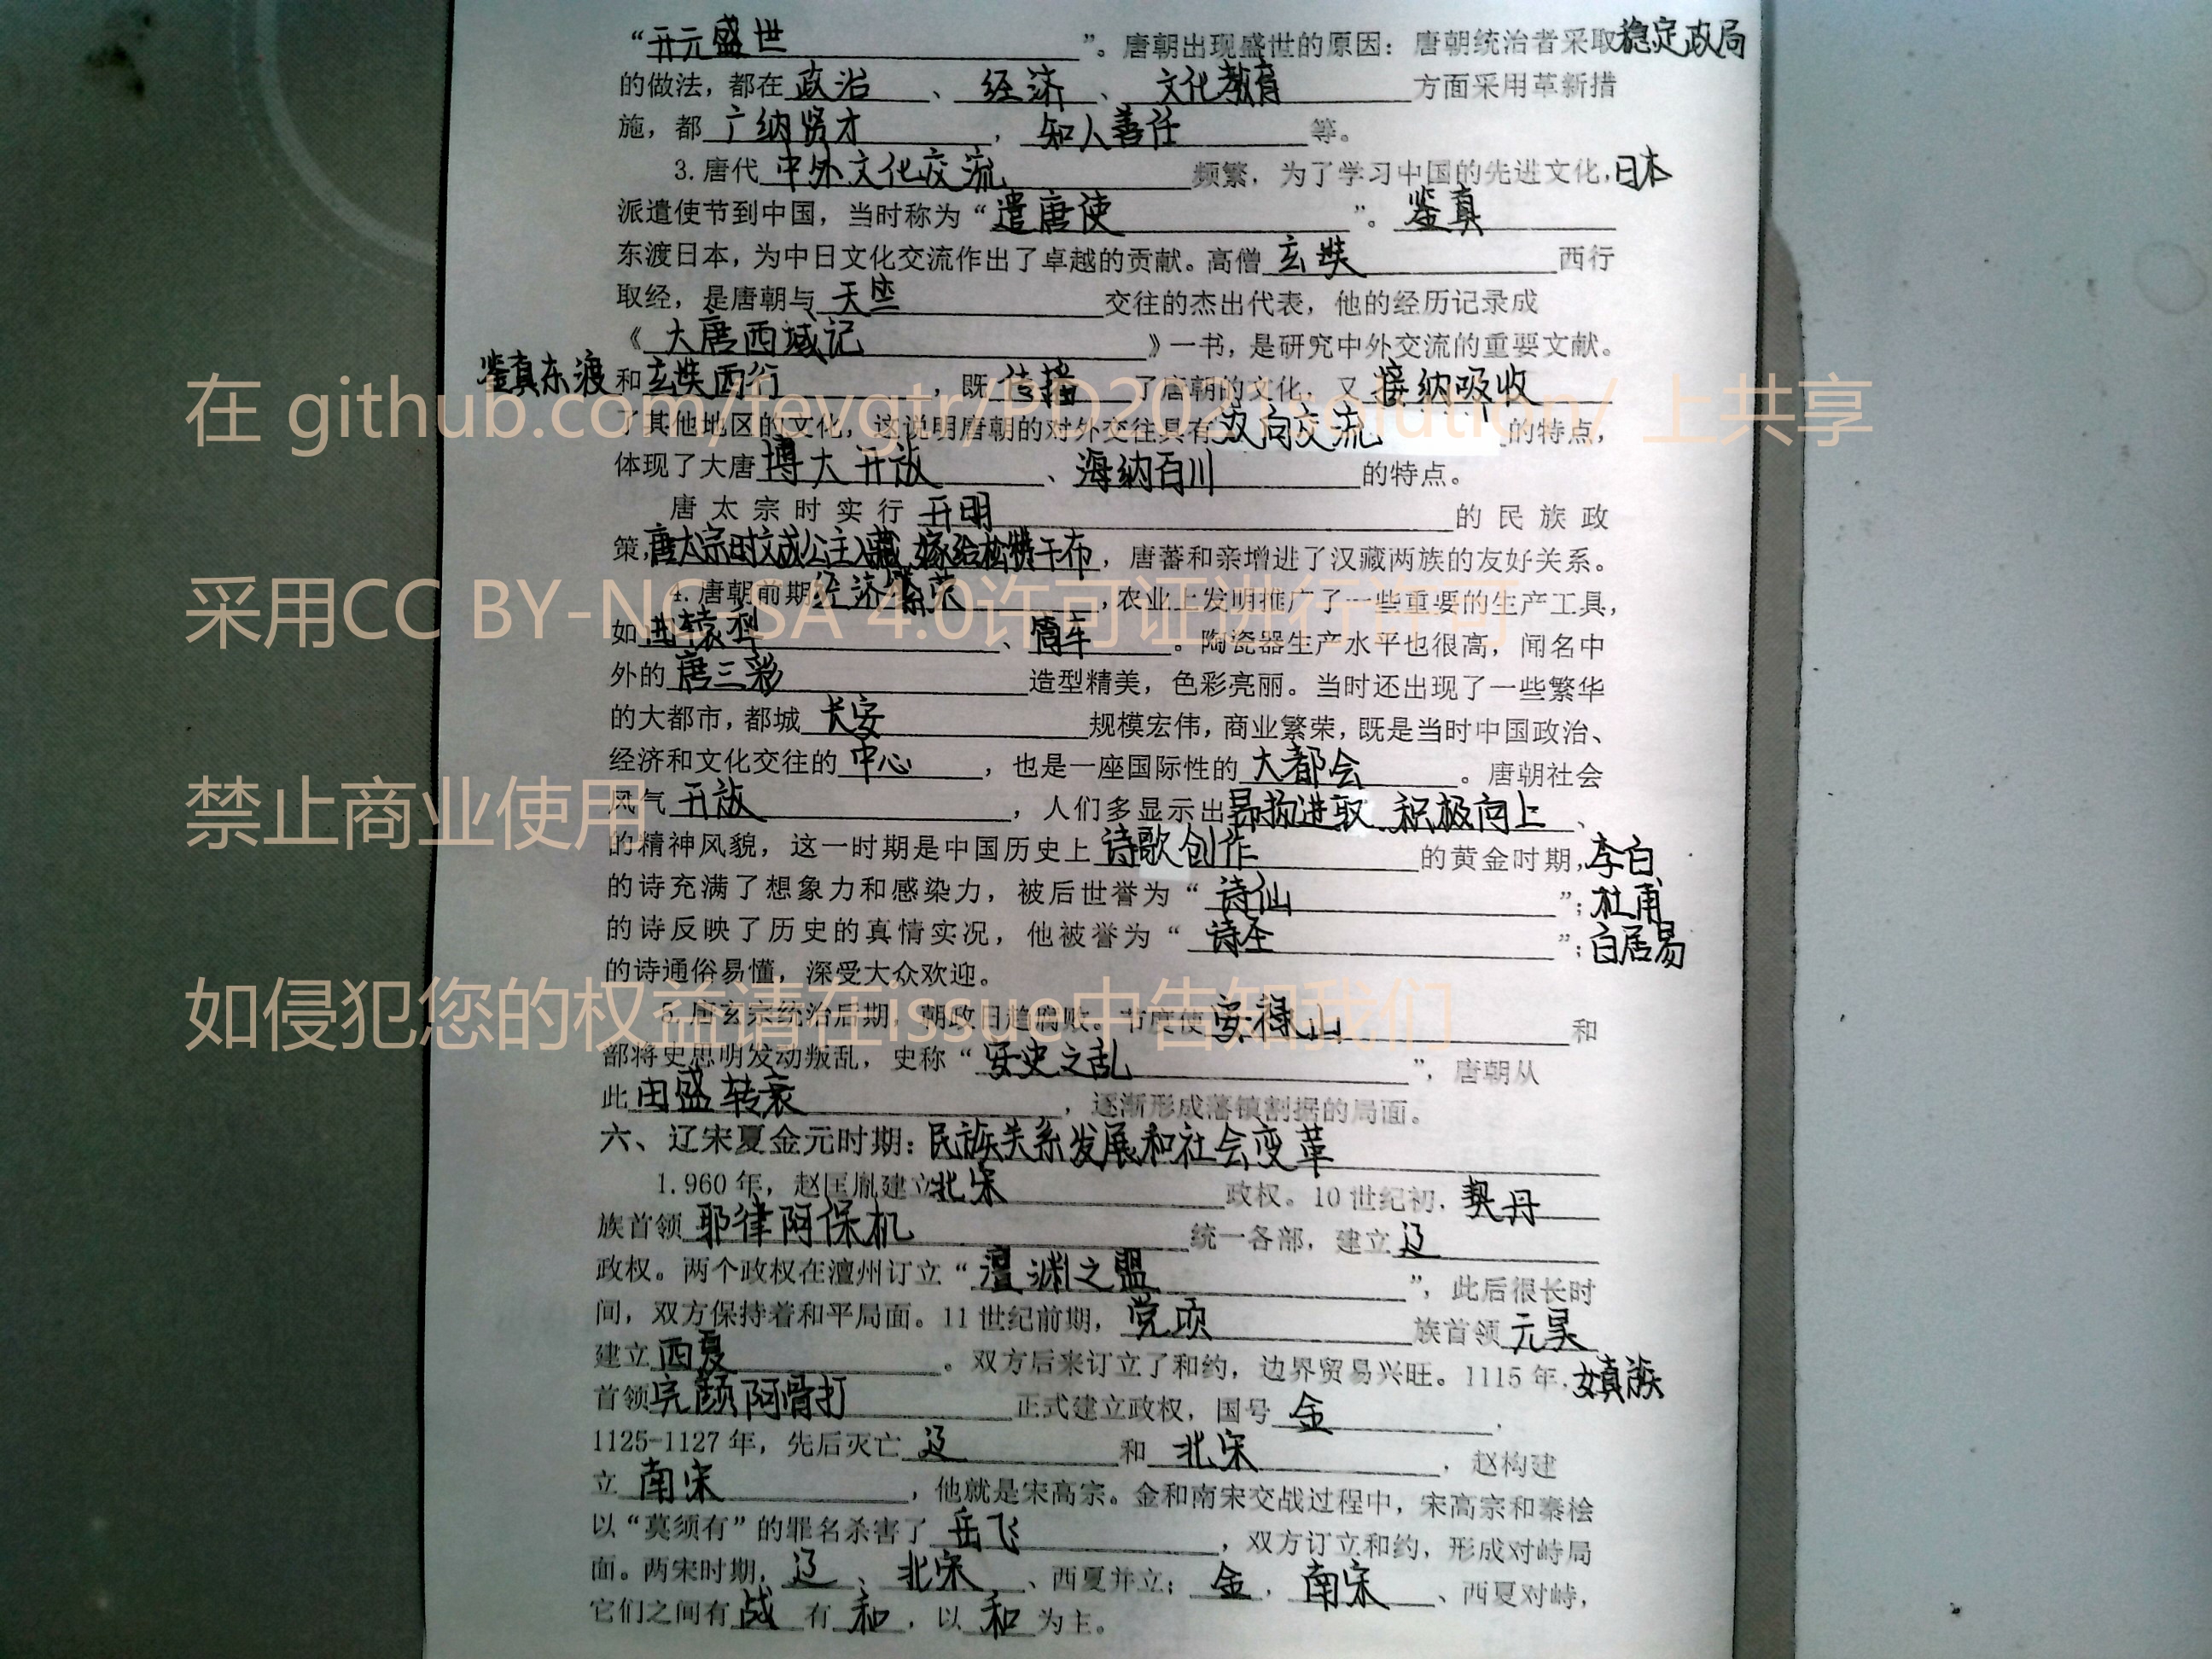 “开元盛世”。唐朝出现盛世的原因：唐朝统治者采取稳定政局
的做法，都在政治、经济、文化教育方面采用革新措
施，都广纳贤才，知人善任等。
3.唐代中外文化交流频繁，为了学习中国的先进文化，日本
派遣使节到中国，当时称为“遣唐使”。鉴真
东渡日本，为中日文化交流作出了卓越的贡献。高僧玄奘西行
取经，是唐朝与天竺交往的杰出代表，他的经历记录成
《大唐西域记》一书，是研究中外交流的重要文献。
鉴真东渡和玄奘西行，既传播了唐朝的文化，又接纳吸收
在 github.com/fevgtr/PD202 solution/ 上共享
了其他地区的文化，这说明唐朝的对外交往具有双向交流的特点，
体现了大唐博大开放、海纳百川的特点。
唐太宗时实行开明的民族政
策，唐太宗时文成公主入藏 嫁给松赞干布，唐蕃和亲增进了汉藏两族的友好关系。
采用CC BY-NC-SA 4.0许可证进行许可
4.唐朝前期经济繁荣，农业上发明推广了一些重要的生产工具，
如曲辕犁、筒车。陶瓷器生产水平也很高，闻名中
外的唐三彩造型精美，色彩亮丽。当时还出现了一些繁华
的大都市，都城长安规模宏伟，商业繁荣，既是当时中国政治、
经济和文化交往的中心，也是一座国际性的大都会。唐朝社会
风气开放，人们多显示出昂扬进取 积极向上、
禁止商业使用
的精神风貌，这一时期是中国历史上诗歌创作的黄金时期，李白
的诗充满了想象力和感染力，被后世誉为“诗仙”；杜甫
的诗反映了历史的真情实况，他被誉为“诗圣”；白居易
的诗通俗易懂，深受大众欢迎。
如侵犯您的权益请在issue中告知我们
5.唐玄宗统治后期，朝政日趋腐败。节度使安禄山和
部将史思明发动叛乱，史称“安史之乱”，唐朝从
此由盛转衰，逐渐形成藩镇割据的局面。
六、辽宋夏金元时期：民族关系发展和社会变革
1.960年，赵匡胤建立北宋政权。10世纪初，契丹
族首领耶律阿保机统一各部，建立辽
政权。两个政权在澶州订立“澶渊之盟”，此后很长时
间，双方保持着和平局面。11世纪前期，党项族首领元昊
建立西夏。双方后来订立了和约，边界贸易兴旺。1115年，女真族
首领完颜阿骨打正式建立政权，国号金.
1125-1127年，先后灭亡辽和北宋，赵构建
立南宋，他就是宋高宗。金和南宋交战过程中，宋高宗和秦桧
以“莫须有”的罪名杀害了岳飞，双方订立和约，形成对峙局
面。两宋时期，辽、北宋、西夏并立；金，南宋、西夏对峙，
它们之间有战有和，以和为主。